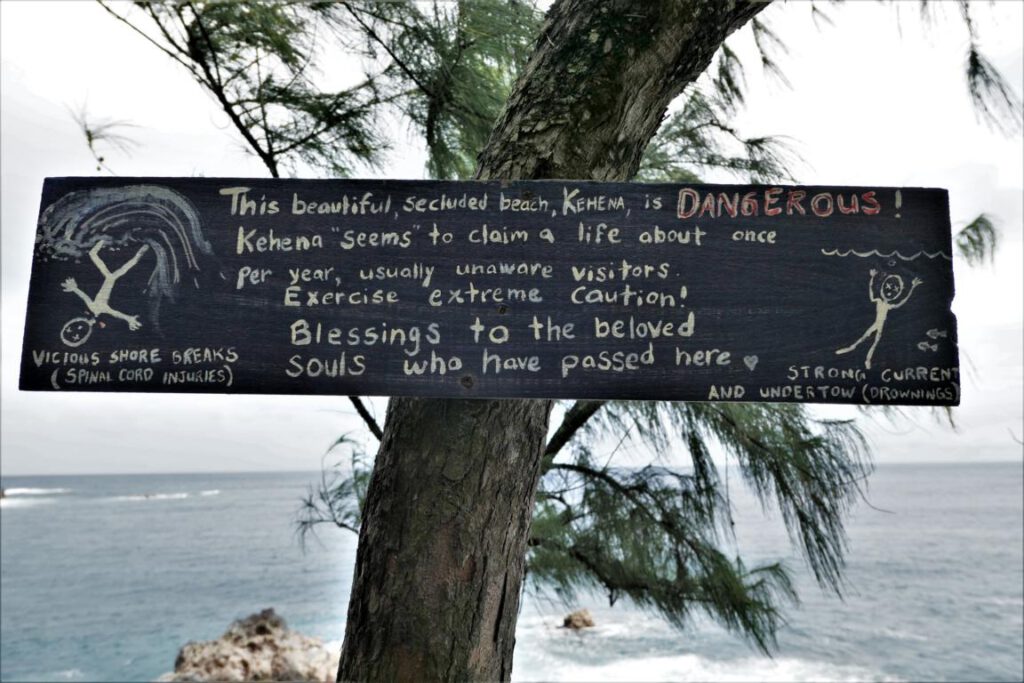 This beautiful, secluded beach, KEHENA, is DANGEROUS!
Kehena "seems" to claim a life about once
per year, usually unaware visitors.
Exercise extreme caution!
Blessings to the beloved
souls who have passed here ♥
VICIOUS SHORE BREAKS
(SPINAL CORD INJURIES)
STRONG CURRENT
AND UNDERTOW (DROWNINGS)